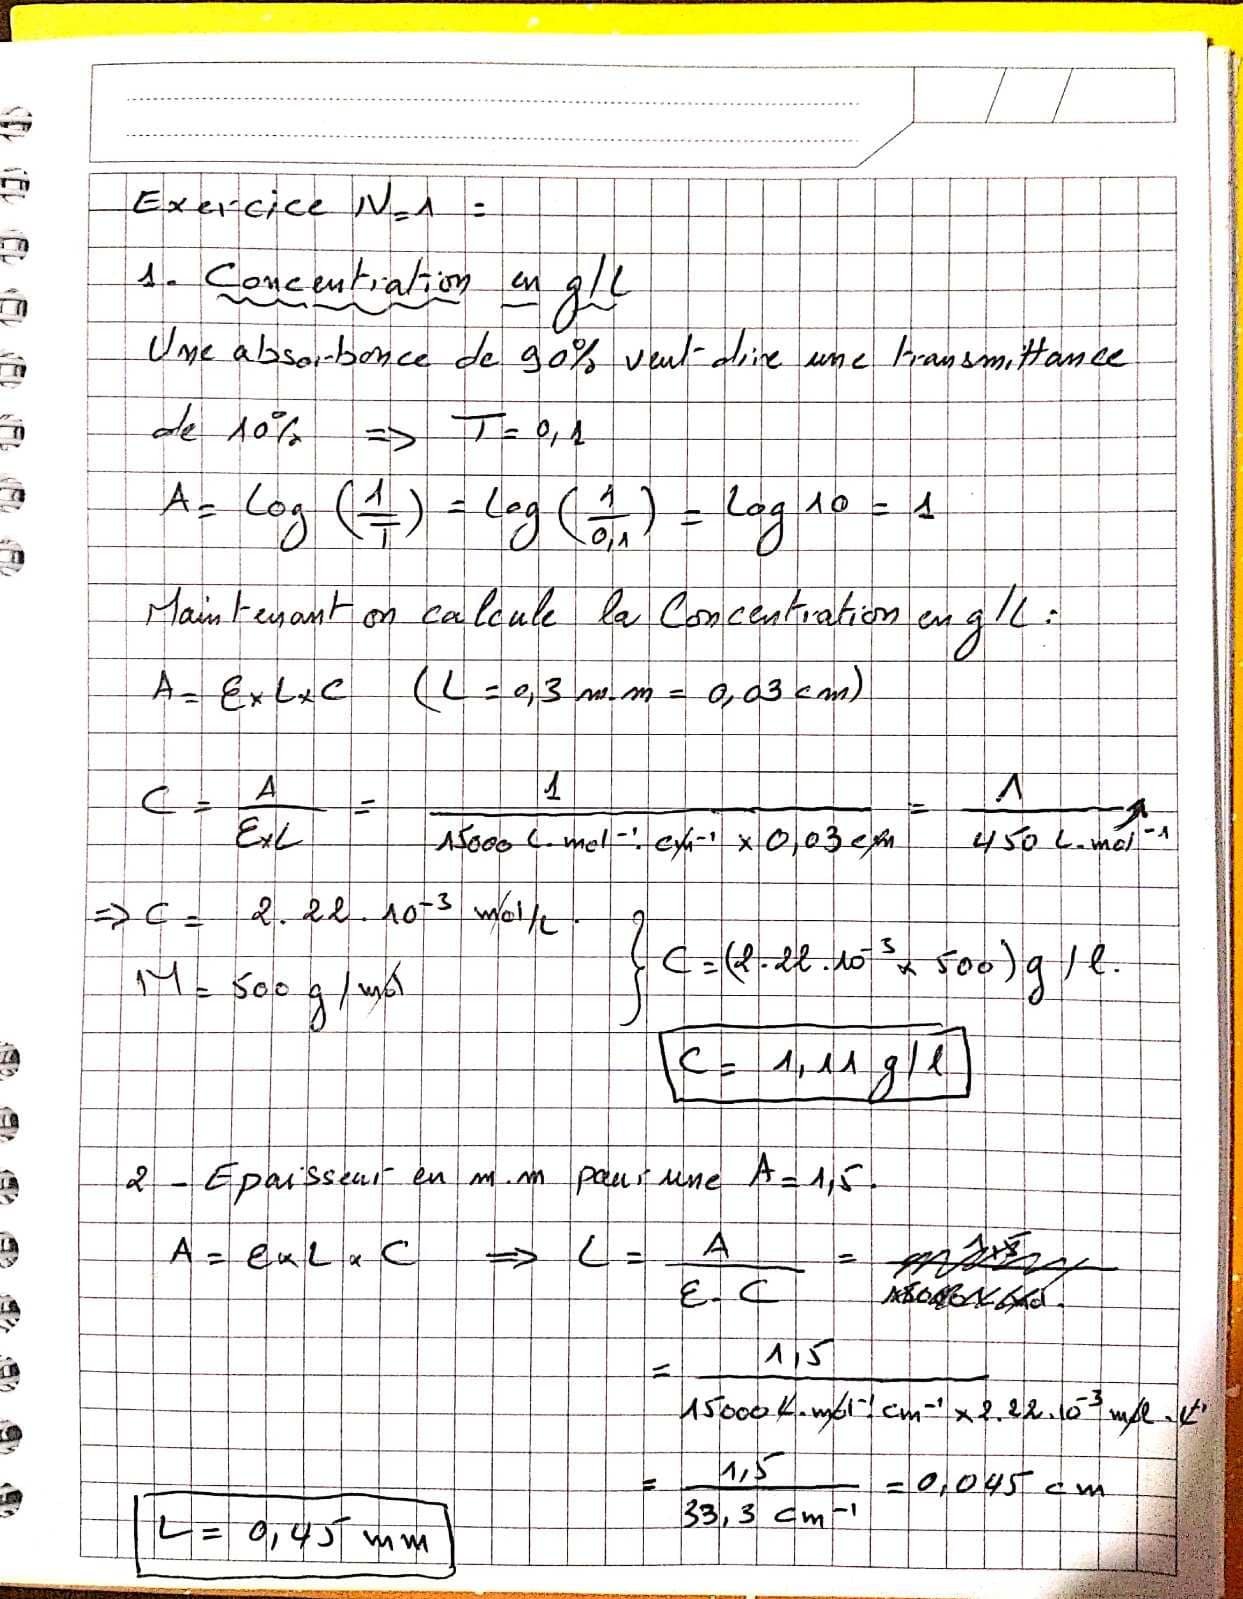 Exercice N=1 :
1. Concentration en g/L
Une absorbance de 90% veut dire une transmittance
de 10% => T=0,1
A= Log (1/T) = Log (1/0,1) = Log 10 = 1
Maintenant on calcule la Concentration en g/L :
A= ExLxC (L=0,3 m.m = 0,03 cm)
C = A/ExL = 1/15000 L.mol⁻¹.cm⁻¹ x 0,03 cm = 1/450 L.mol⁻¹
=> C = 2.22.10⁻³ mol/L
M= 500 g/mol
C=(2.22.10⁻³ x 500) g/l.
C= 1,11 g/l
2 - Epaisseur en m.m pour une A=1,5.
A= ExLxC => L= A/E.C =
= 1,5/15000 L.mol⁻¹.cm⁻¹ x 2.22.10⁻³ mol.L⁻¹
= 1,5/33,3 cm⁻¹ = 0,045 cm
L= 0,45 mm